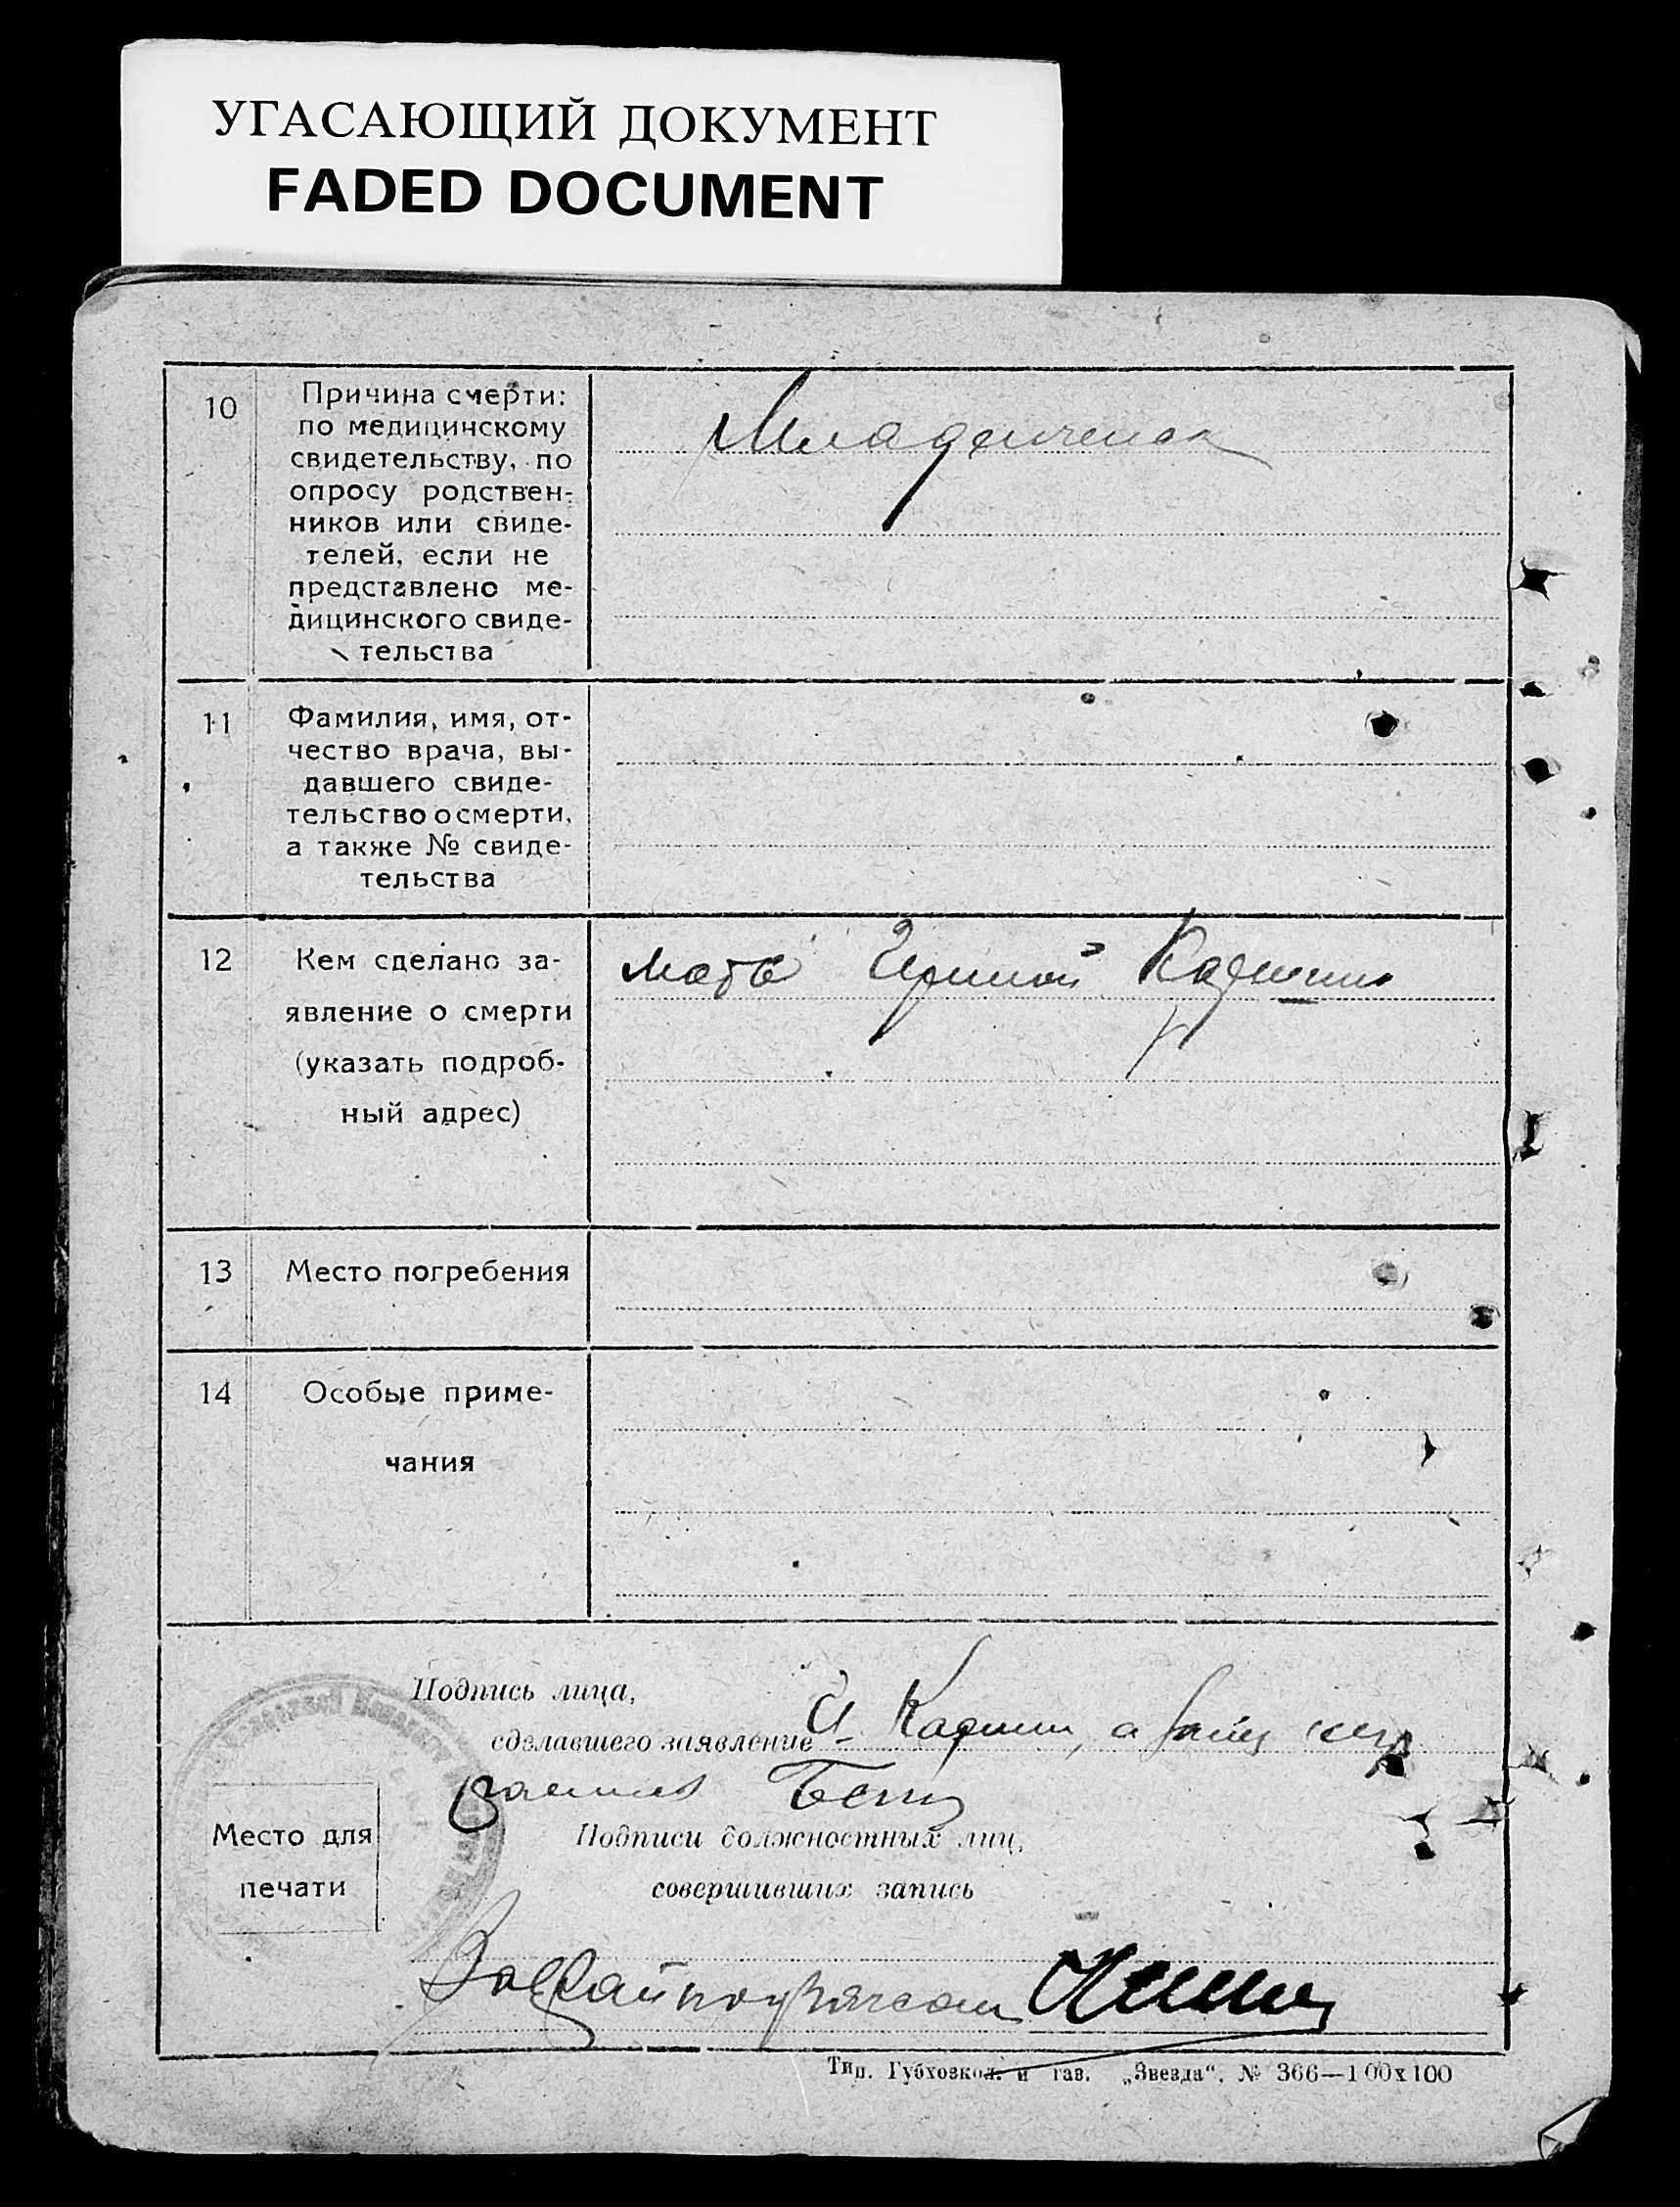 УГАСАЮЩИЙ ДОКУМЕНТ
FADED DOCUMENT
10
Причина смерти:
по медицинскому
свидетельству, по
опросу родствен-
ников или свиде-
телей, если не
представлено ме-
дицинского свиде-
тельства
Младенческая
11
Фамилия, имя, от-
чество врача, вы-
давшего свиде-
тельство о смерти,
а также № свиде-
тельства
12
Кем сделано за-
явление о смерти
(указать подроб-
ный адрес)
мать
13
Место погребения
14
Особые приме-
чания
Подпись лица,
сделавшего заявление
Место для
печати
Подписи должностных лиц,
совершивших запись
Тип. Губхозкол. и газ. „Звезда“. № 366—100х100